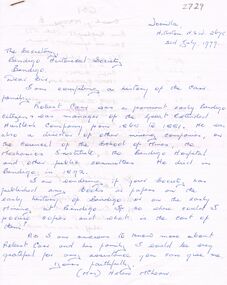 2729
"Joanella
2nd July, 1977.
The Secretary,
Bendigo Historical Society
Bendigo.
Dear Sir,
I am compiling a history of the Carr
family.
Robert Carr was a prominent early Bendigo
citizen & was manager of the Great Extended
Hustler's Company from 1865 to 1881. He was
also a director of other mining companies, on
the council of the School of Mines, the
Mechanics Institute, the Bendigo Hospital
and other public committees. He died in
Bendigo in 1892.
I am wondering if your Society has
published any books or papers on the
early history of Bendigo or on the early
Mining at Bendigo. If so where could I
procure copies and what is the cost of
them?
As I am anxious to know more about
Robert Carr and his family I would be very
grateful for any assistance you can give me
Yours faithfully,
(Mrs) Helen